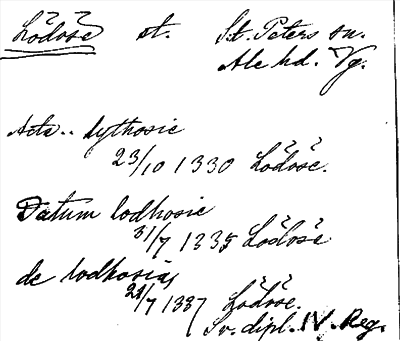 Lödöse st. S:t. Peters sn.
Ale hd. Vg.
Acta.. lythosie
23/10 1330 Lödöse.
Datum lodhosie
31/7 1335 Lödöse
de lodhosia
24/7 1337 Lödöse.
Sv. dipl. IV. Reg.